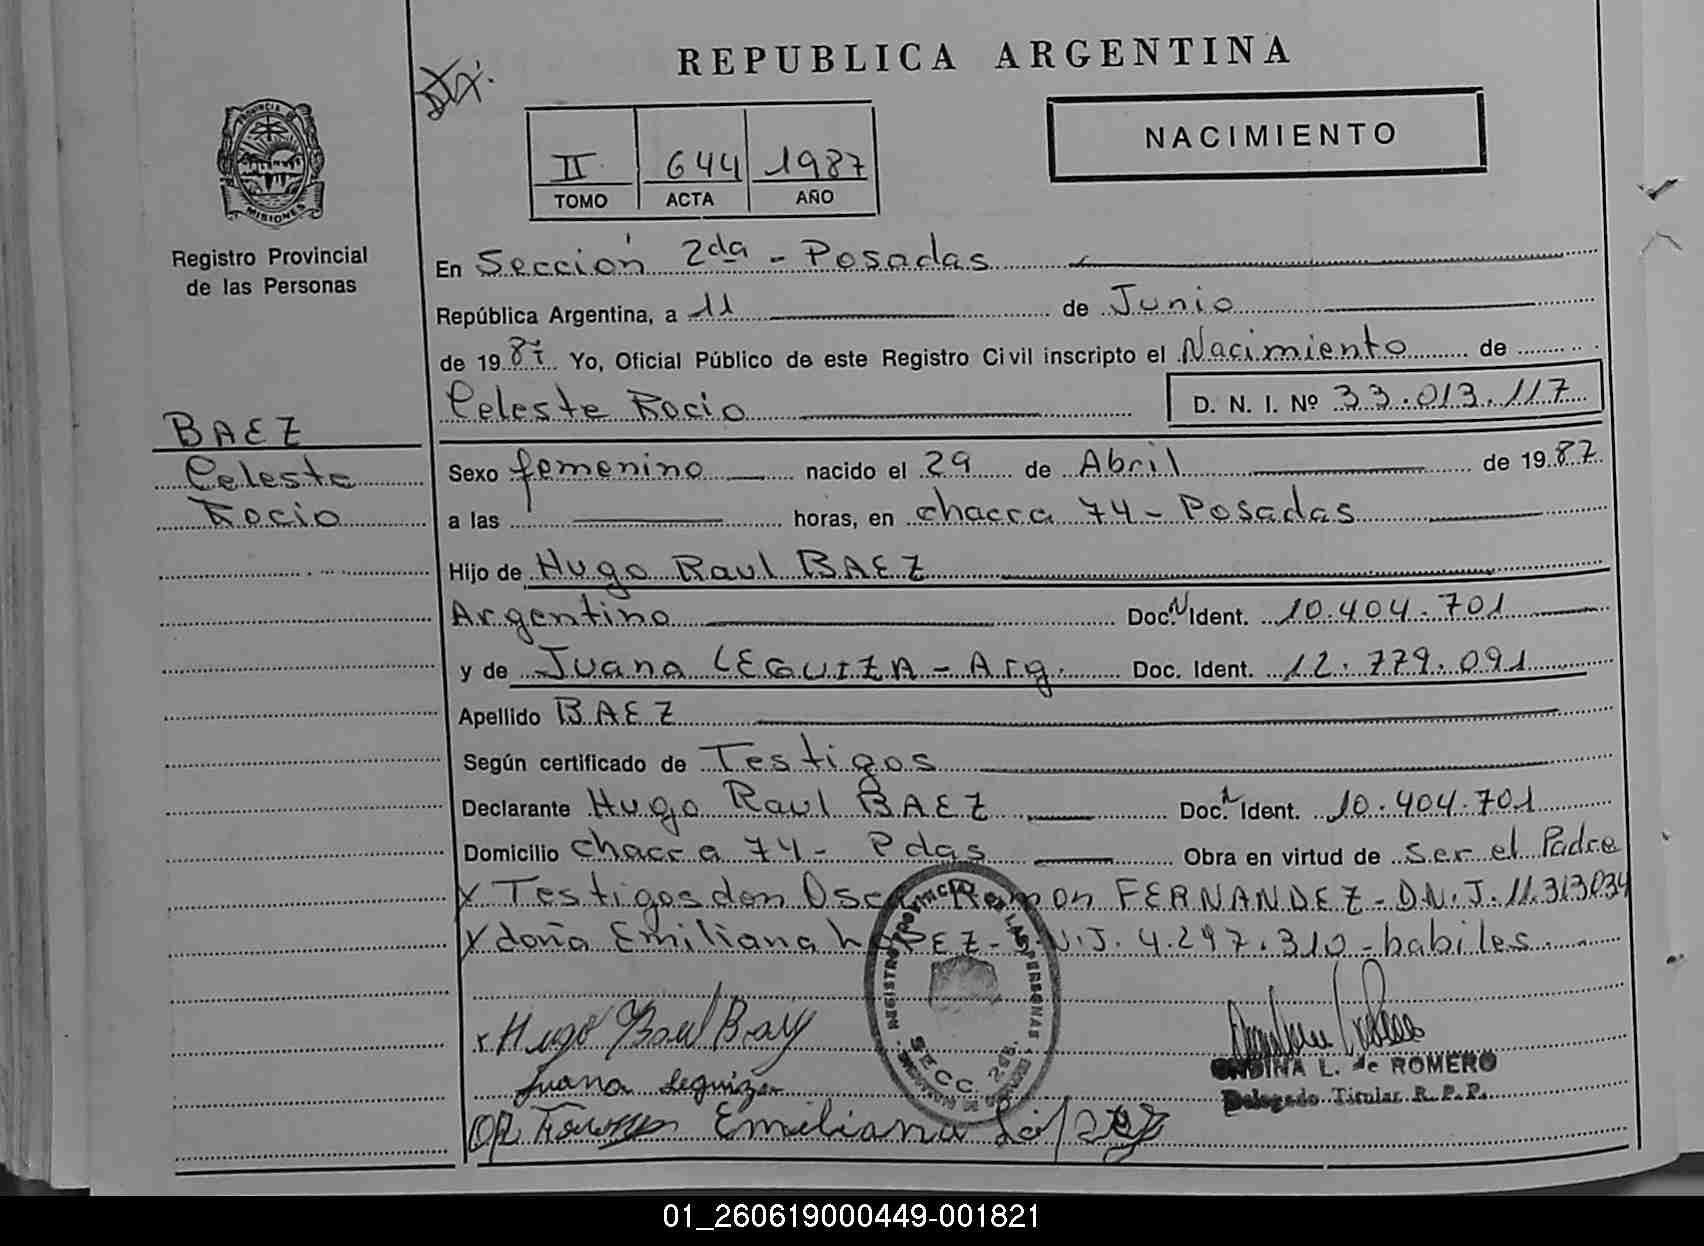 REPUBLICA ARGENTINA
PROVINCIA DE
MISIONES
Registro Provincial
de las Personas
II 644 1987
TOMO ACTA AÑO
NACIMIENTO
BAEZ
Celeste
Rocio
En Sección 2da - Posadas
República Argentina, a 11 de Junio
de 1987 Yo, Oficial Público de este Registro Civil inscripto el Nacimiento de
Celeste Rocio D. N. I. Nº 33.013.117
Sexo femenino nacido el 29 de Abril de 1987
a las horas, en chacra 74 - Posadas
Hijo de Hugo Raul BAEZ
Argentino Doc. Ident. 10.404.701
y de Juana LEGUIZA - Arg. Doc. Ident. 12.779.091
Apellido BAEZ
Según certificado de Testigos
Declarante Hugo Raul BAEZ Doc. Ident. 10.404.701
Domicilio chacra 74 - Pdas Obra en virtud de ser el Padre
Testigos don Oscar Ramon FERNANDEZ - D.N.I. 11.313.034
y doña Emiliana LOPEZ - D.N.I. 4.297.310 - habiles
REGISTRO PROVINCIAL DE LAS PERSONAS
SECC. 2da.
Hugo Raul Baez
Juana Leguiza
Emiliana López
ONDINA L. de ROMERO
Delegado Titular R. P. P.
01_260619000449-001821